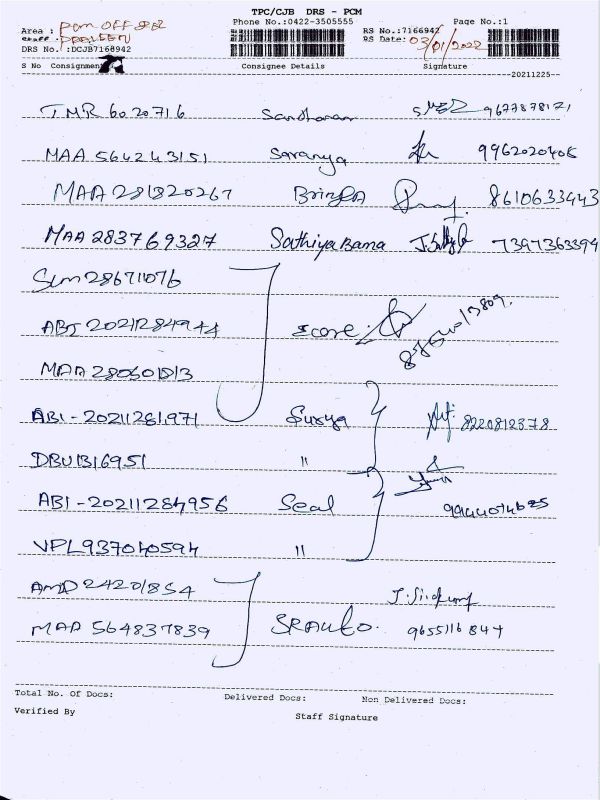 TPC/CJB DRS - PCM
Phone No.:0422-3505555 Page No.:1
Area : pcm OFF
Staff : PRAVEEN RS No.:7166942
DRS No. :DCJB7168942 RS Date: 03/01/2022
S No Consignment Consignee Details Signature
--20211225--
TMR 6020716 Sandharan 9677878121
MAA 564243151 Saranya 9962020405
MAA 281820267 8610633443
MAA 283769327 Sathiya Bama 7397363399
SLM 28671076
ABI 20211284944 Score
MAA 280601813
ABI-20211281971 Surya 8220812378
DBU1316951 "
ABI-20211284956 Seal 9944074625
VPL937040594 "
AMD 24201854
MAA 564837839 SRAuto. 9655116847
Total No. Of Docs: Delivered Docs: Non Delivered Docs:
Verified By Staff Signature